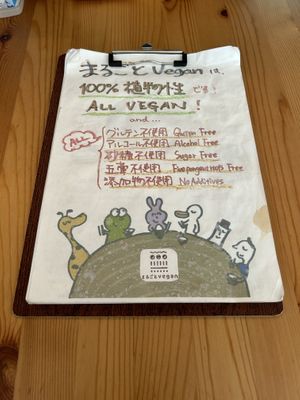 まるごとVeganは、
100% 植物性です!
ALL VEGAN!
and...
ALL
グルテン不使用 Gluten Free
アルコール不使用 Alcohol Free
砂糖不使用 Sugar Free
五葷不使用 Five pungent roots Free
添加物不使用 No Additives
まるごとvegan